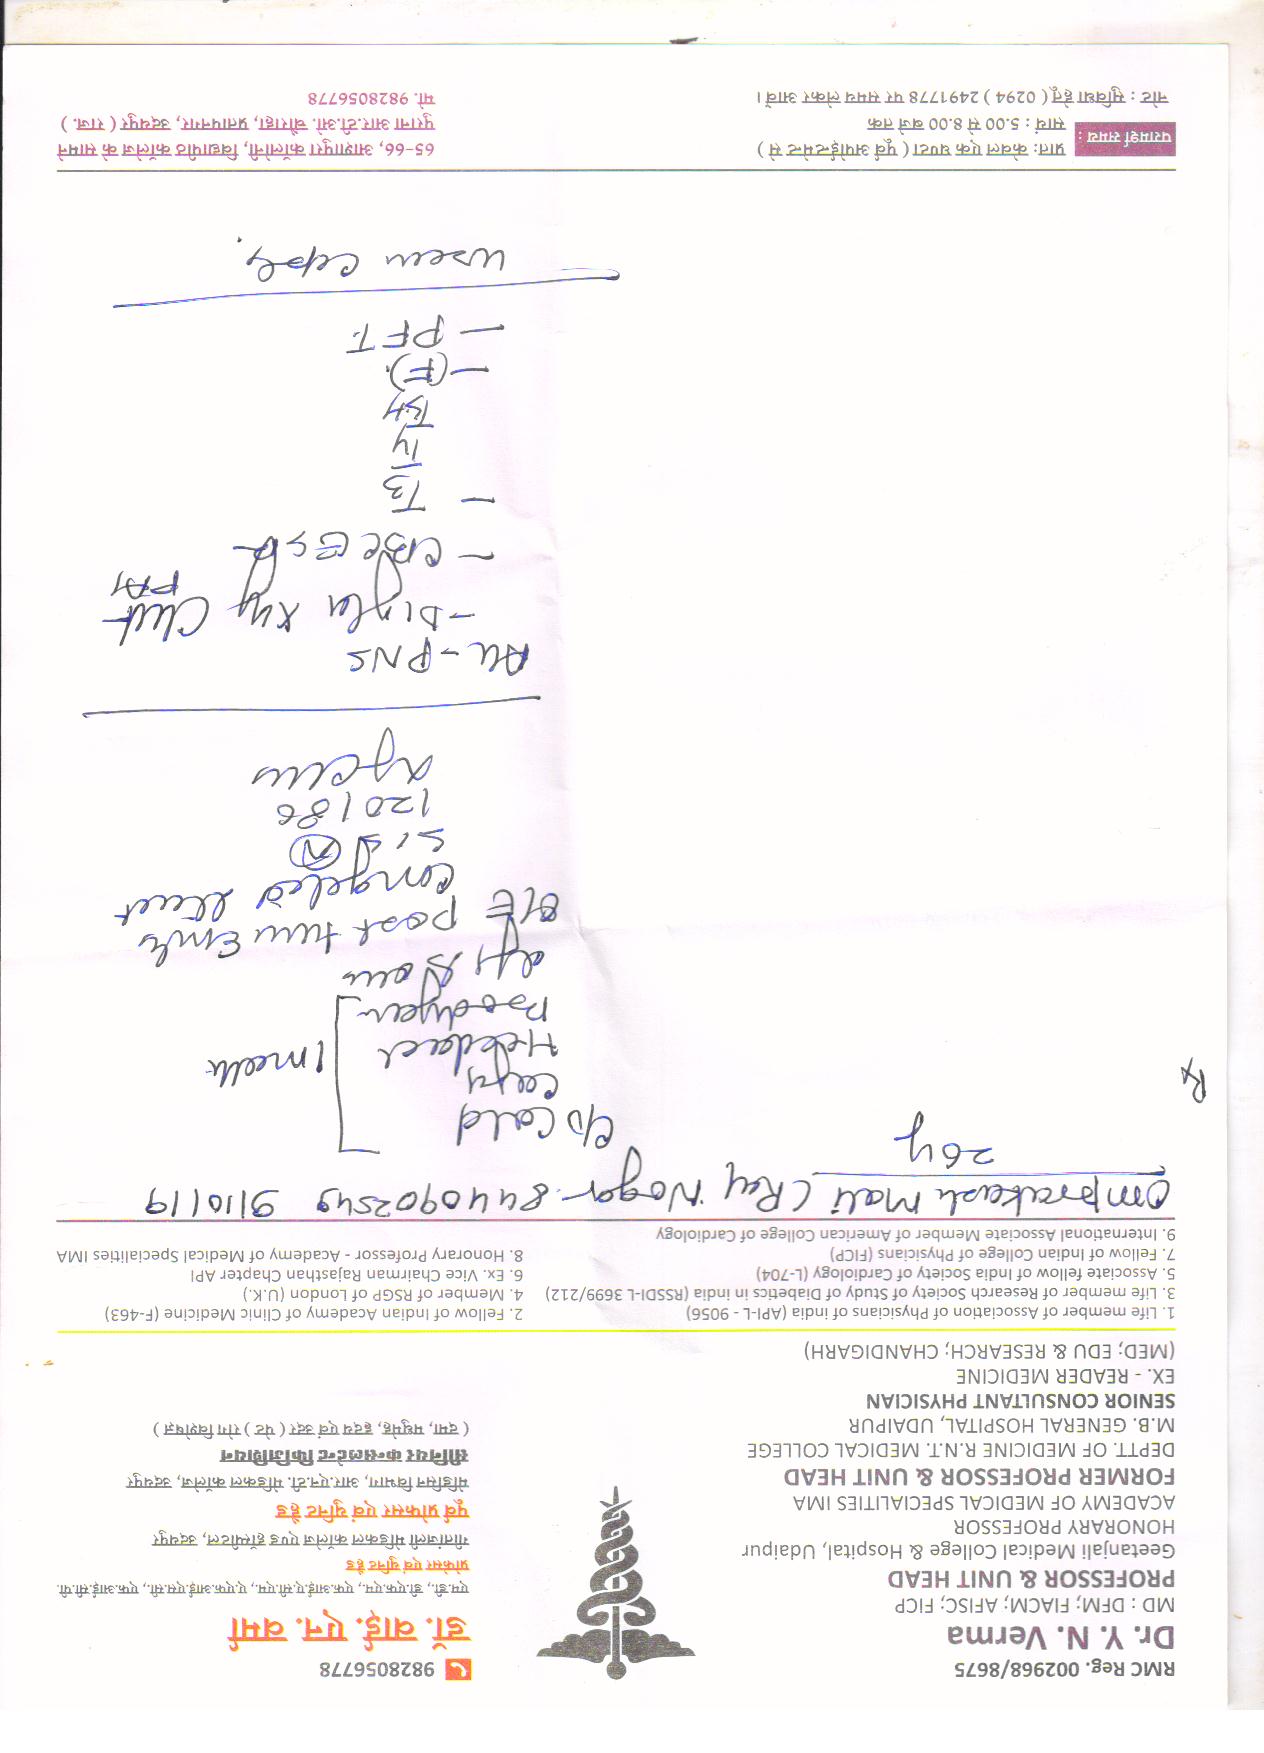 RMC Reg. 002968/8675
Dr. Y. N. Verma
MD : DFM; FIACM; AFISC; FICP
PROFESSOR & UNIT HEAD
Geetanjali Medical College & Hospital, Udaipur
HONORARY PROFESSOR
ACADEMY OF MEDICAL SPECIALITIES IMA
FORMER PROFESSOR & UNIT HEAD
DEPTT. OF MEDICINE R.N.T. MEDICAL COLLEGE
M.B. GENERAL HOSPITAL, UDAIPUR
SENIOR CONSULTANT PHYSICIAN
EX. - READER MEDICINE
(MED; EDU & RESEARCH; CHANDIGARH)
9828056778
डॉ. वाई. एन. वर्मा
एम.डी., डी.एफ.एम., एफ.आई.ए.सी.एम., ए.एफ.आई.एस.सी., एफ.आई.सी.पी.
प्रोफेसर एवं यूनिट हैड
गीतांजली मेडिकल कॉलेज एण्ड हॉस्पीटल, उदयपुर
पूर्व प्रोफेसर एवं यूनिट हैड
मेडिसिन विभाग, आर.एन.टी. मेडिकल कॉलेज, उदयपुर
सीनियर कन्सलटेन्ट फिजिशियन
( दमा, मधुमेह, हृदय एवं उदर ( पेट ) रोग विशेषज्ञ )
1. Life member of Association of Physicians of india (API-L - 9056)
2. Fellow of Indian Academy of Clinic Medicine (F-463)
3. Life member of Research Society of Study of Diabetics in india (RSSDI-L 3699/212)
4. Member of RSGP of London (U.K.)
5. Associate fellow of India Society of Cardiology (L-704)
6. Ex. Vice Chairman Rajasthan Chapter API
7. Fellow of Indian College of Physicians (FICP)
8. Honorary Professor - Academy of Medical Specialities IMA
9. International Associate Member of American College of Cardiology
Omprakash Mali ( Raj Nagar 8440902549 9/10/19
26y
Rx
C/o Cold
Headache
O/E Post
120/80
- PNS
- X ray Chest
PA
- CBC ESR
- T3
T4
TSH
- (F).
- PFT.
परामर्श समय :
प्रातः केवल एक घण्टा ( पूर्व अपोईन्टमेन्ट से )
सायं : 5.00 से 8.00 बजे तक
नोट : सुविधा हेतु ( 0294 ) 2491778 पर समय लेकर आवें।
65-66, आशापुरा कॉलोनी, विद्यापीठ कॉलेज के सामने
पुराना आर.टी.ओ. चौराहा, प्रतापनगर, उदयपुर ( राज. )
मो. 9828056778